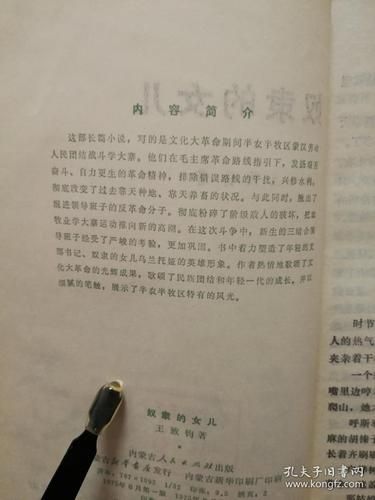 奴隶的女儿
内容简介
这部长篇小说，写的是文化大革命期间半农半牧区蒙汉劳动
人民团结战斗学大寨。他们在毛主席革命路线指引下，发扬艰苦
奋斗、自力更生的革命精神，排除错误路线的干扰，兴修水利，
彻底改变了过去靠天种地、靠天养畜的状况。与此同时，揪出了
混进领导班子的反革命分子。彻底粉碎了阶级敌人的破坏，把农
牧业学大寨运动推向新的高潮。在这次斗争中，新生的三结合领
导班子经受了严峻的考验，更加巩固。书中着力塑造了年轻的支
部书记、奴隶的女儿乌兰托娅的英雄形象。作者热情地歌颂了文
化大革命的光辉成果，歌颂了民族团结和年轻一代的成长，并以
细腻的笔触，展示了半农半牧区特有的风光。
奴隶的女儿
王致钧著
内蒙古人民出版社出版
内蒙古新华书店发行 内蒙古新华印刷厂印刷
787×1092 1/32
1975年6月第一版
时节
人的热气
夹杂着干
一个
嘴里边哼
爬山，她
呼斯
麻的胡
长着齐刷
孔夫子旧书网